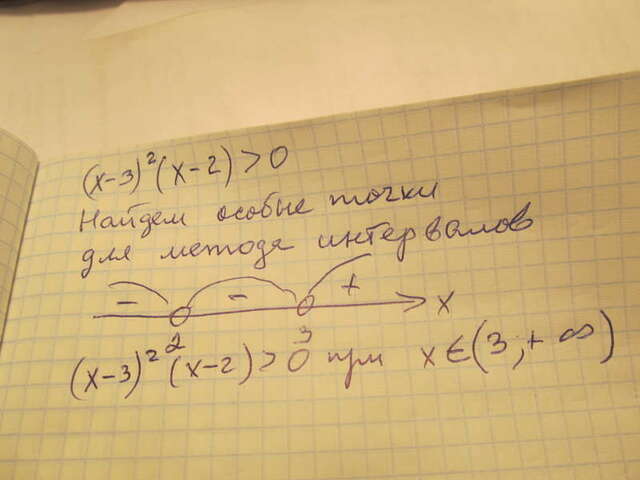 (x-3)²(x-2)>0
Найдем особые точки
для метода интервалов
- - + x
2 3
(x-3)²(x-2)>0 при x∈(3;+∞)